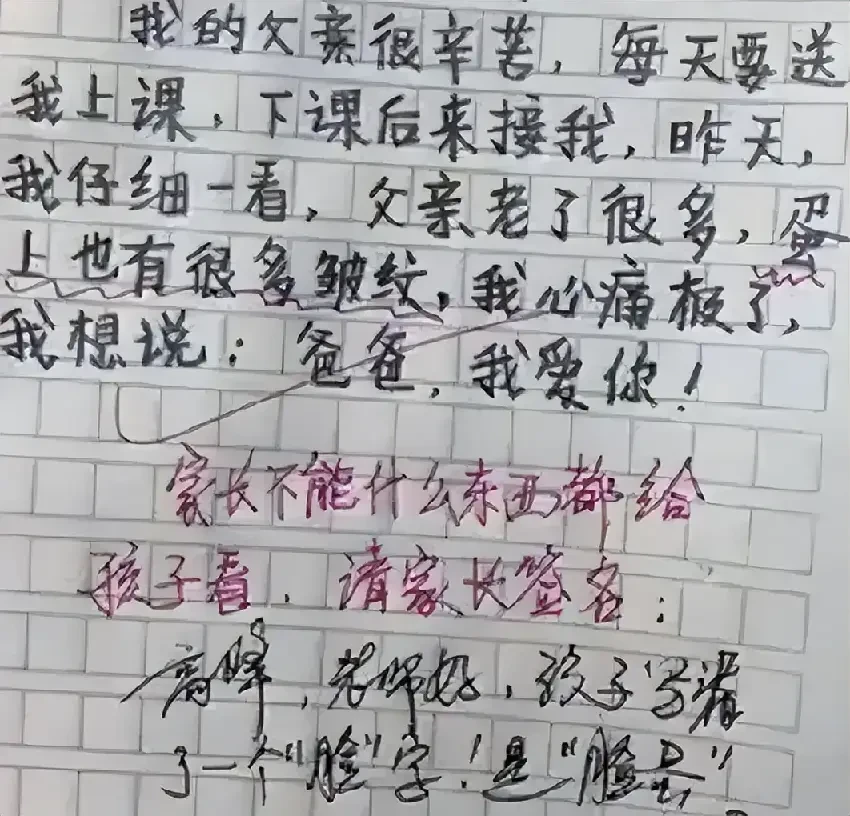 我的父亲很辛苦，每天要送
我上课，下课后来接我，昨天，
我仔细一看，父亲老了很多，蛋
上也有很多皱纹，我心痛极了，
我想说：爸爸，我爱你！
家长不能什么东西都给
孩子看，请家长签名：
高峰，老师好，孩子写错
了一个“脸”字！是“脸云”